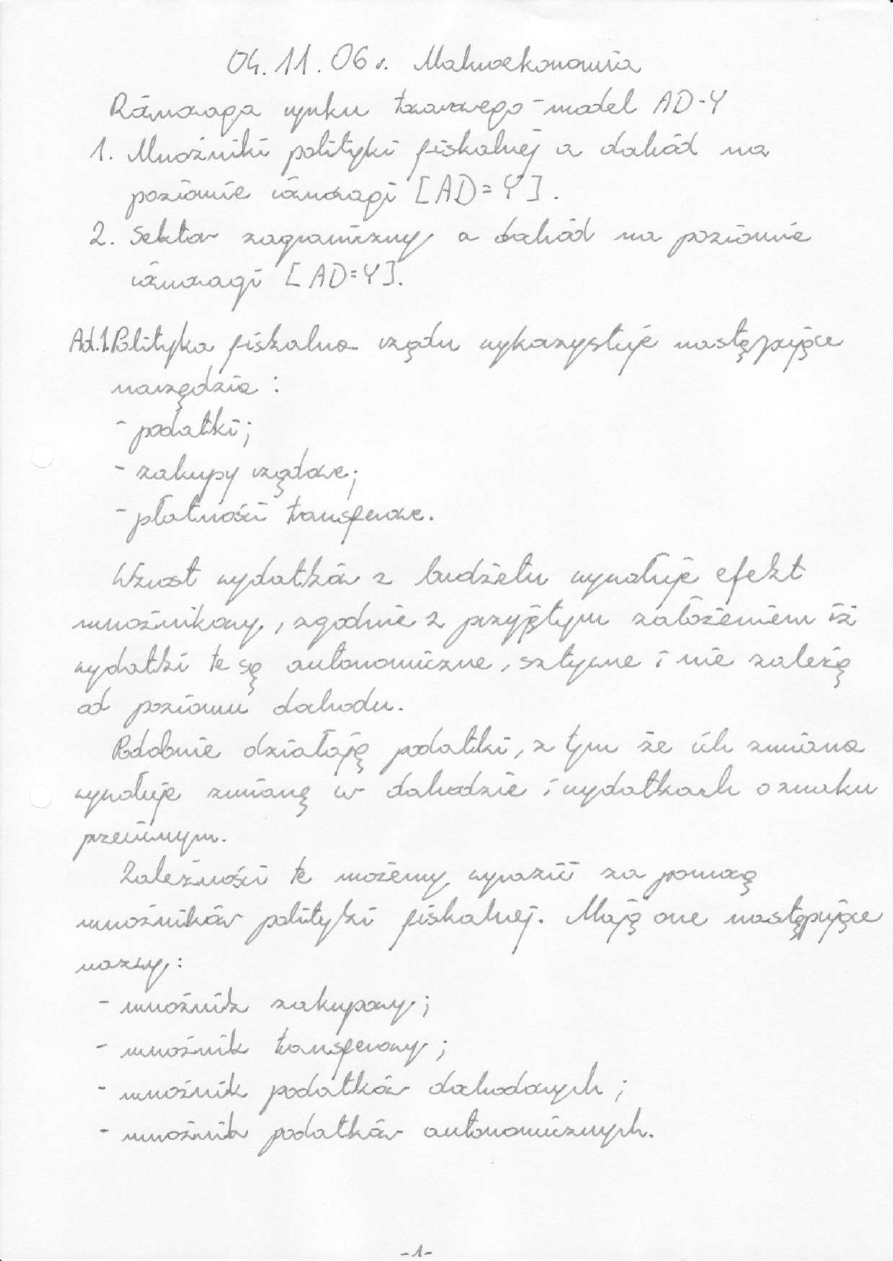 04.11.06 r. Makroekonomia
Równowaga rynku towarowego - model AD-Y
1. Mnożniki polityki fiskalnej a dochód na
poziomie równowagi [AD=Y].
2. Sektor zagraniczny a dochód na poziomie
równowagi [AD=Y].
Ad.1. Polityka fiskalna rządu wykorzystuje następujące
narzędzia :
- podatki;
- zakupy rządowe;
- płatności transferowe.
Wzrost wydatków z budżetu wywołuje efekt
mnożnikowy, zgodnie z przyjętym założeniem iż
wydatki te są autonomiczne, sztywne i nie zależą
od poziomu dochodu.
Podobnie działają podatki, z tym że ich zmiana
wywołuje zmianę w dochodzie i wydatkach o znaku
przeciwnym.
Zależności te możemy wyrazić za pomocą
mnożników polityki fiskalnej. Mają one następujące
nazwy:
- mnożnik zakupowy;
- mnożnik transferowy;
- mnożnik podatków dochodowych;
- mnożnik podatków autonomicznych.
-1-